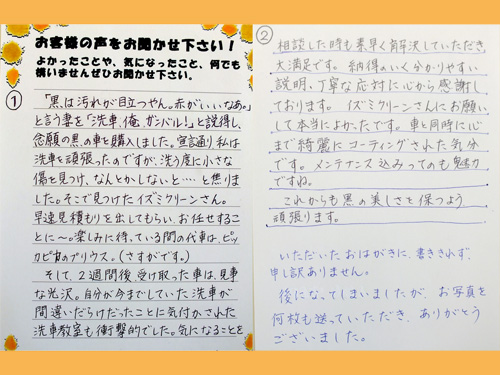 お客様の声をお聞かせ下さい！
よかったことや、気になったこと、何でも
構いませんぜひお聞かせ下さい。
①
「黒は汚れが目立つやん。赤がいいなあ。」
と言う妻を「洗車、俺、ガンバル！」と説得し、
念願の黒の車を購入しました。宣言通り私は
洗車を頑張ったのですが、洗う度に小さな
傷を見つけ、なんとかしないと…と焦りま
した。そこで見つけたイズミクリーンさん。
早速見積もりを出してもらい、お任せするこ
とに〜。楽しみに待っている間の代車は、ピッ
カピカのプリウス。（さすがです。）
そして、2週間後、受け取った車は、見事
な光沢。自分が今までしていた洗車が
間違いだらけだったことに気付かされた
洗車教室も衝撃的でした。気になることを
②
相談した時も素早く解決していただき、
大満足です。納得のいく分かりやすい
説明、丁寧な応対に心から感謝し
ております。イズミクリーンさんにお願い
して本当によかったです。車と同時に心
まで綺麗にコーティングされた気分
です。メンテナンス込みってのも魅力
ですね。
これからも黒の美しさを保つよう
頑張ります。
いただいたおはがきに、書ききれず、
申し訳ありません。
後になってしまいましたが、お写真を
何枚も送っていただき、ありがとう
ございました。